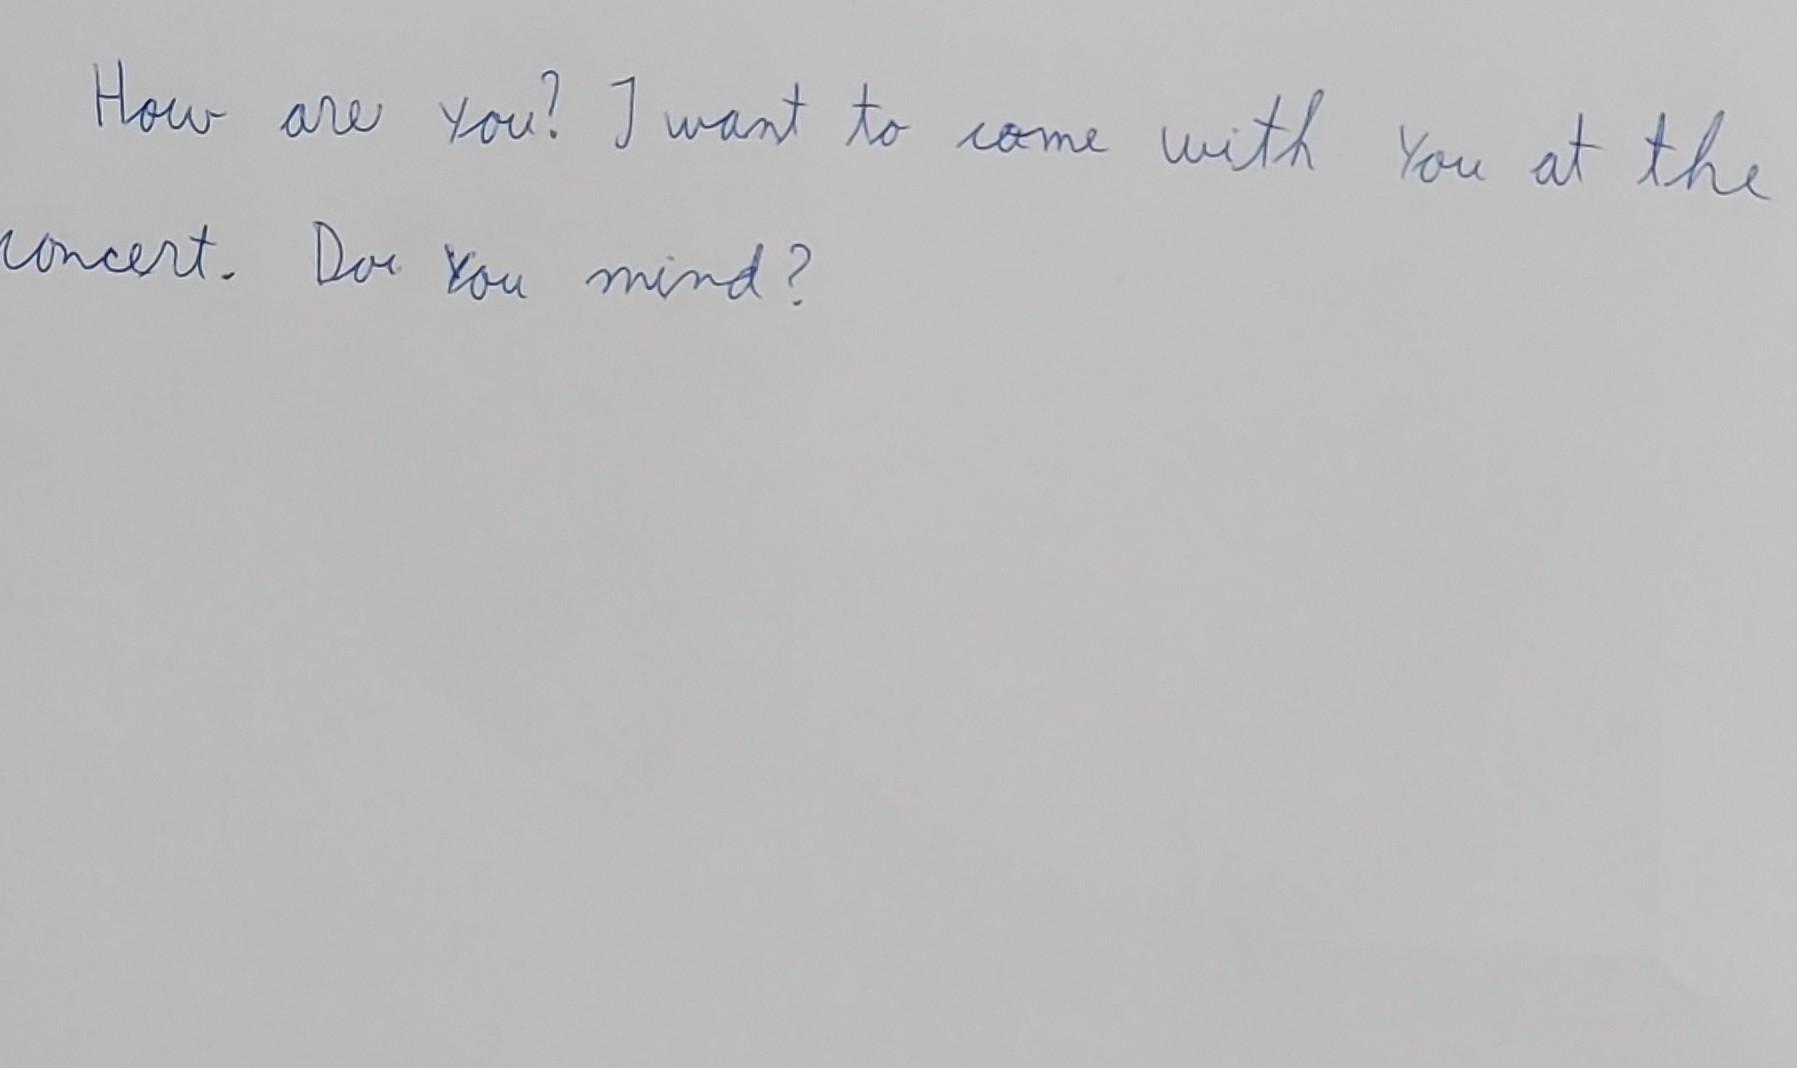 How are you? I want to come with You at the
concert. Do You mind?